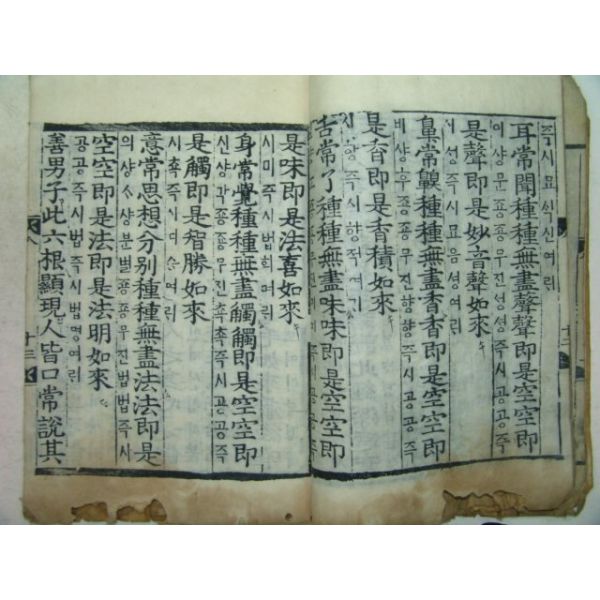 즉시묘식신여릭
耳常聞種種無盡聲聲即是空空即
이샹문죵죵무진셩셩즉시공공즉
是聲即是妙音聲如來
시셩즉시묘음셩여릭
鼻常齅種種無盡香香即是空空即
비샹후죵죵무진향향즉시공공즉
是香即是香積如來
시향즉시향젹여릭
舌常了種種無盡味味即是空空即
是味即是法喜如來
시미즉시법희여릭
身常覺種種無盡觸觸即是空空即
신샹각죵죵무진쵹쵹즉시공공즉
是觸即是智勝如來
시쵹즉시지승여릭
意常思想分別種種無盡法法即是
의샹ᄉ샹분별죵죵무진법법즉시
空空即是法即是法明如來
공공즉시법즉시법명여릭
善男子此六根顯現人皆口常說其
八
十三